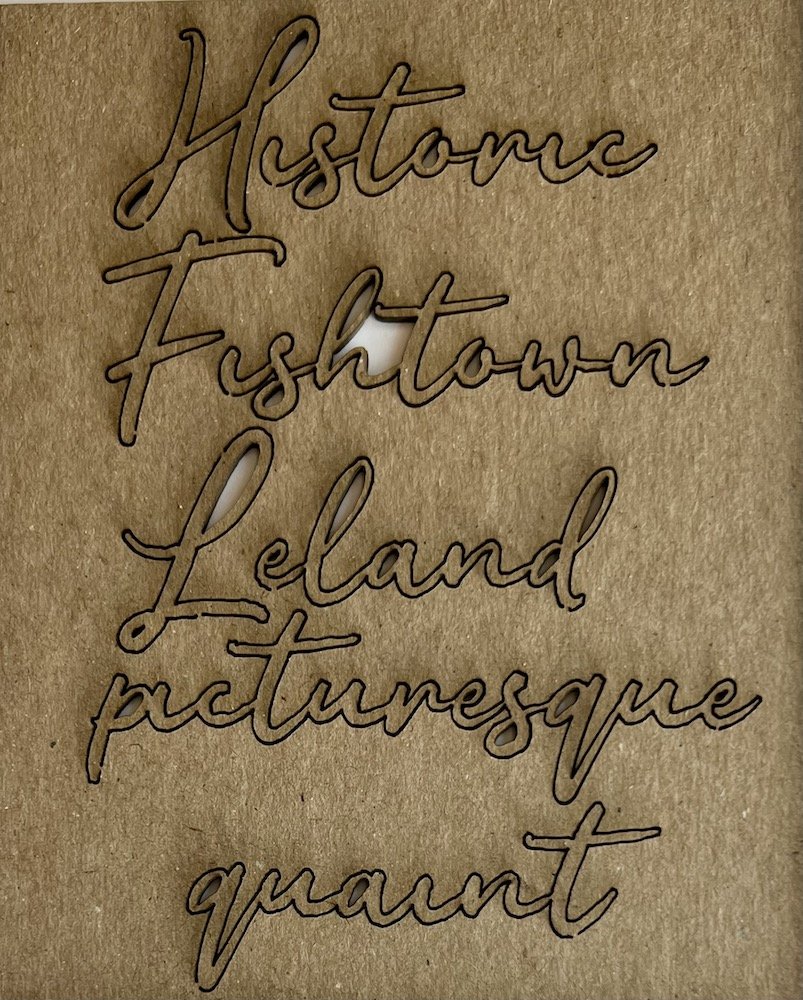 Historic
Fishtown
Leland
picturesque
quaint